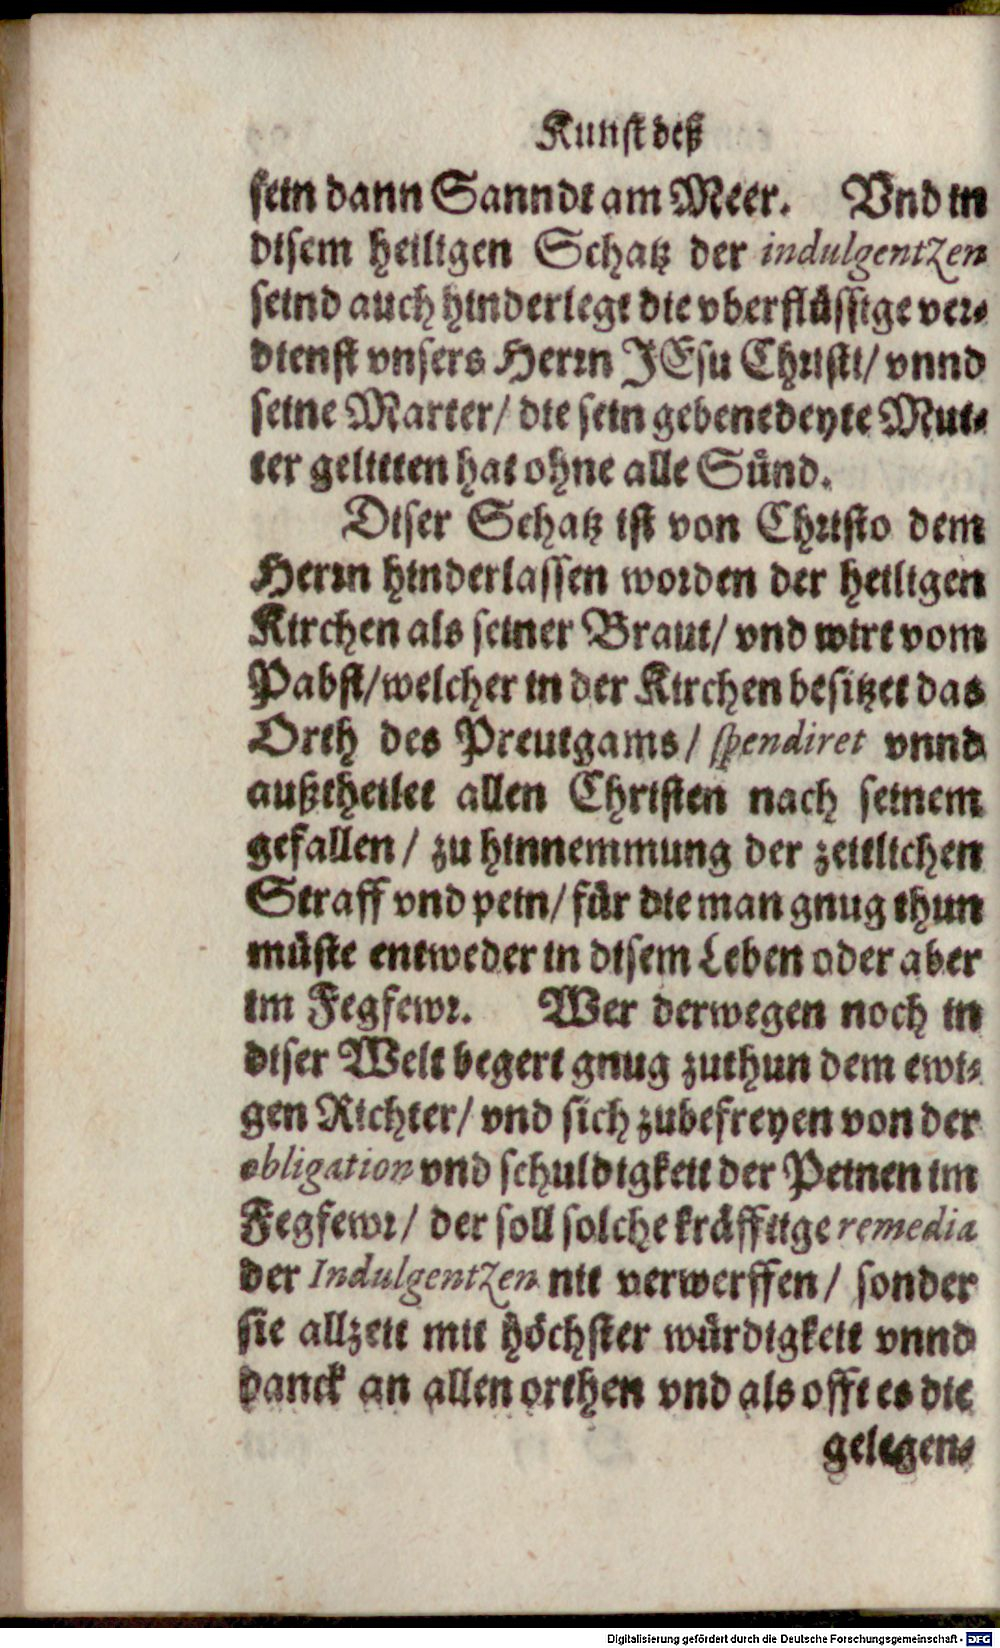 Kunst deß
sein dann Sanndt am Meer. Vnd in
disem heiligen Schatz der indulgentzen
seind auch hinderlegt die vberflüssige ver-
dienst vnsers Herrn JEsu Christi/ vnnd
seine Marter/ die sein gebenedeyte Mut-
ter gelitten hat ohne alle Sünd.
Diser Schatz ist von Christo dem
Herrn hinderlassen worden der heiligen
Kirchen als seiner Braut/ vnd wirt vom
Pabst/welcher in der Kirchen besitzet das
Orth des Preutgams/ spendiret vnnd
außtheilet allen Christen nach seinem
gefallen/ zu hinnemmung der zeitlichen
Straff vnd pein/ für die man gnug thun
müste entweder in disem Leben oder aber
im Fegfewr. Wer derwegen noch in
diser Welt begert gnug zuthun dem ewi-
gen Richter/ vnd sich zubefreyen von der
obligation vnd schuldigkeit der Peinen im
Fegfewr/ der soll solche kräfftige remedia
der Indulgentzen nit verwerffen/ sonder
sie allzeit mit höchster würdigkeit vnnd
danck an allen orthen vnd als offt es die
gelegen-
Digitalisierung gefördert durch die Deutsche Forschungsgemeinschaft - DFG